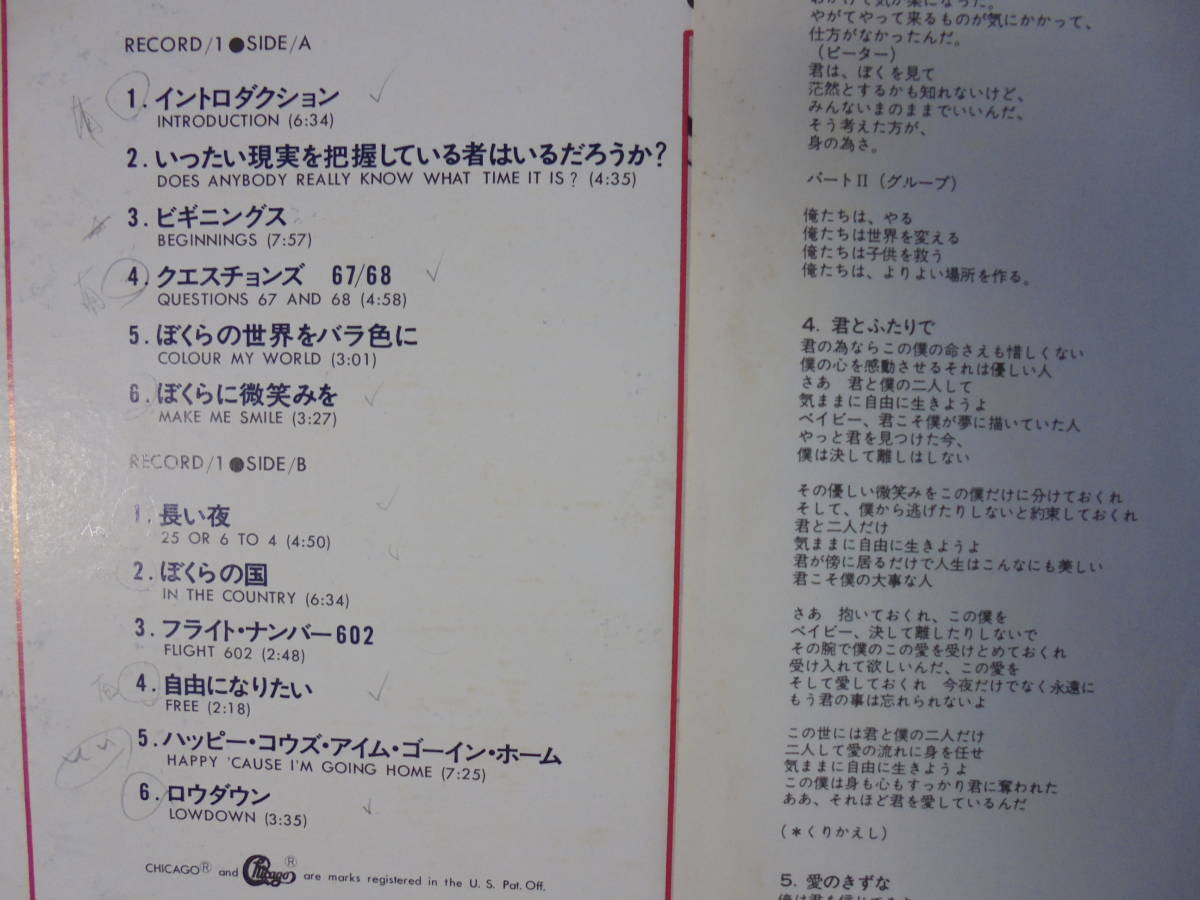 RECORD/1●SIDE/A
1. イントロダクション
INTRODUCTION (6:34)
2. いったい現実を把握している者はいるだろうか?
DOES ANYBODY REALLY KNOW WHAT TIME IT IS? (4:35)
3. ビギニングス
BEGINNINGS (7:57)
4. クエスチョンズ 67/68
QUESTIONS 67 AND 68 (4:58)
5. ぼくらの世界をバラ色に
COLOUR MY WORLD (3:01)
6. ぼくらに微笑みを
MAKE ME SMILE (3:27)
RECORD/1●SIDE/B
1. 長い夜
25 OR 6 TO 4 (4:50)
2. ぼくらの国
IN THE COUNTRY (6:34)
3. フライト・ナンバー602
FLIGHT 602 (2:48)
4. 自由になりたい
FREE (2:18)
5. ハッピー・コウズ・アイム・ゴーイン・ホーム
HAPPY 'CAUSE I'M GOING HOME (7:25)
6. ロウダウン
LOWDOWN (3:35)
CHICAGO® and Chicago® are marks registered in the U. S. Pat. Off.
おかげで気が楽になった。
やがてやって来るものが気にかかって、
仕方がなかったんだ。
(ピーター)
君は、ぼくを見て
茫然とするかも知れないけど、
みんないまのままでいいんだ、
そう考えた方が、
身の為さ。
パートII (グループ)
俺たちは、やる
俺たちは世界を変える
俺たちは子供を救う
俺たちは、よりよい場所を作る。
4. 君とふたりで
君の為ならこの僕の命さえも惜しくない
僕の心を感動させるそれは優しい人
さあ 君と僕の二人して
気ままに自由に生きようよ
ベイビー、君こそ僕が夢に描いていた人
やっと君を見つけた今、
僕は決して離しはしない
その優しい微笑みをこの僕だけに分けておくれ
そして、僕から逃げたりしないと約束しておくれ
君と二人だけ
気ままに自由に生きようよ
君が傍に居るだけで人生はこんなにも美しい
君こそ僕の大事な人
さあ 抱いておくれ、この僕を
ベイビー、決して離したりしないで
その腕で僕のこの愛を受けとめておくれ
受け入れて欲しいんだ、この愛を
そして愛しておくれ 今夜だけでなく永遠に
もう君の事は忘れられないよ
この世には君と僕の二人だけ
二人して愛の流れに身を任せ
気ままに自由に生きようよ
この僕は身も心もすっかり君に奪われた
ああ、それほど君を愛しているんだ
(*くりかえし)
5. 愛のきずな